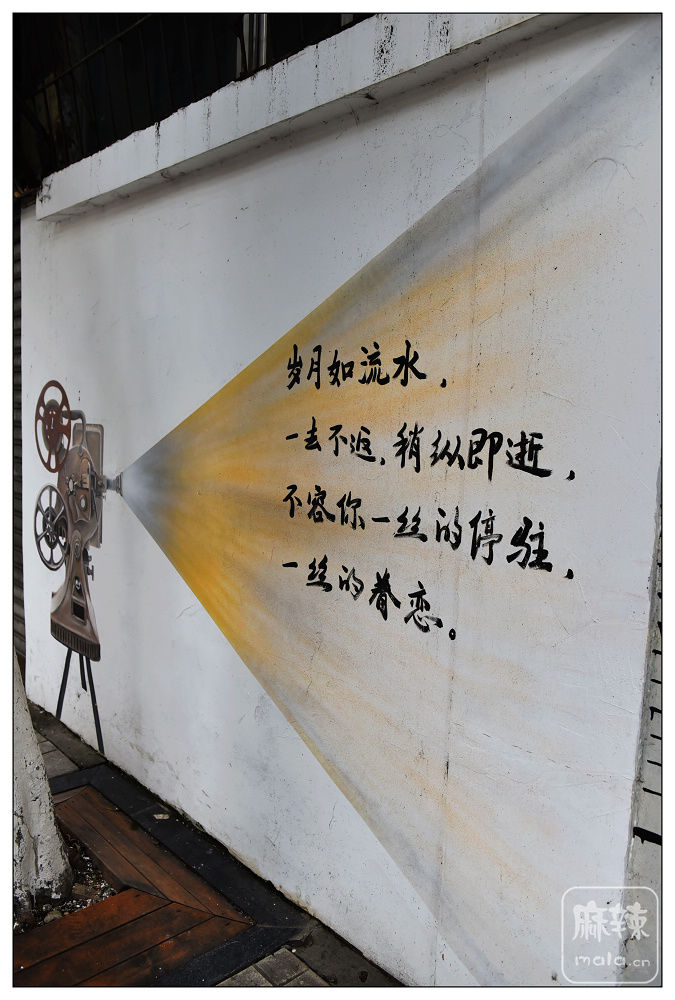 岁月如流水，
一去不返，稍纵即逝，
不容你一丝的停驻，
一丝的眷恋。
麻辣
mala.cn